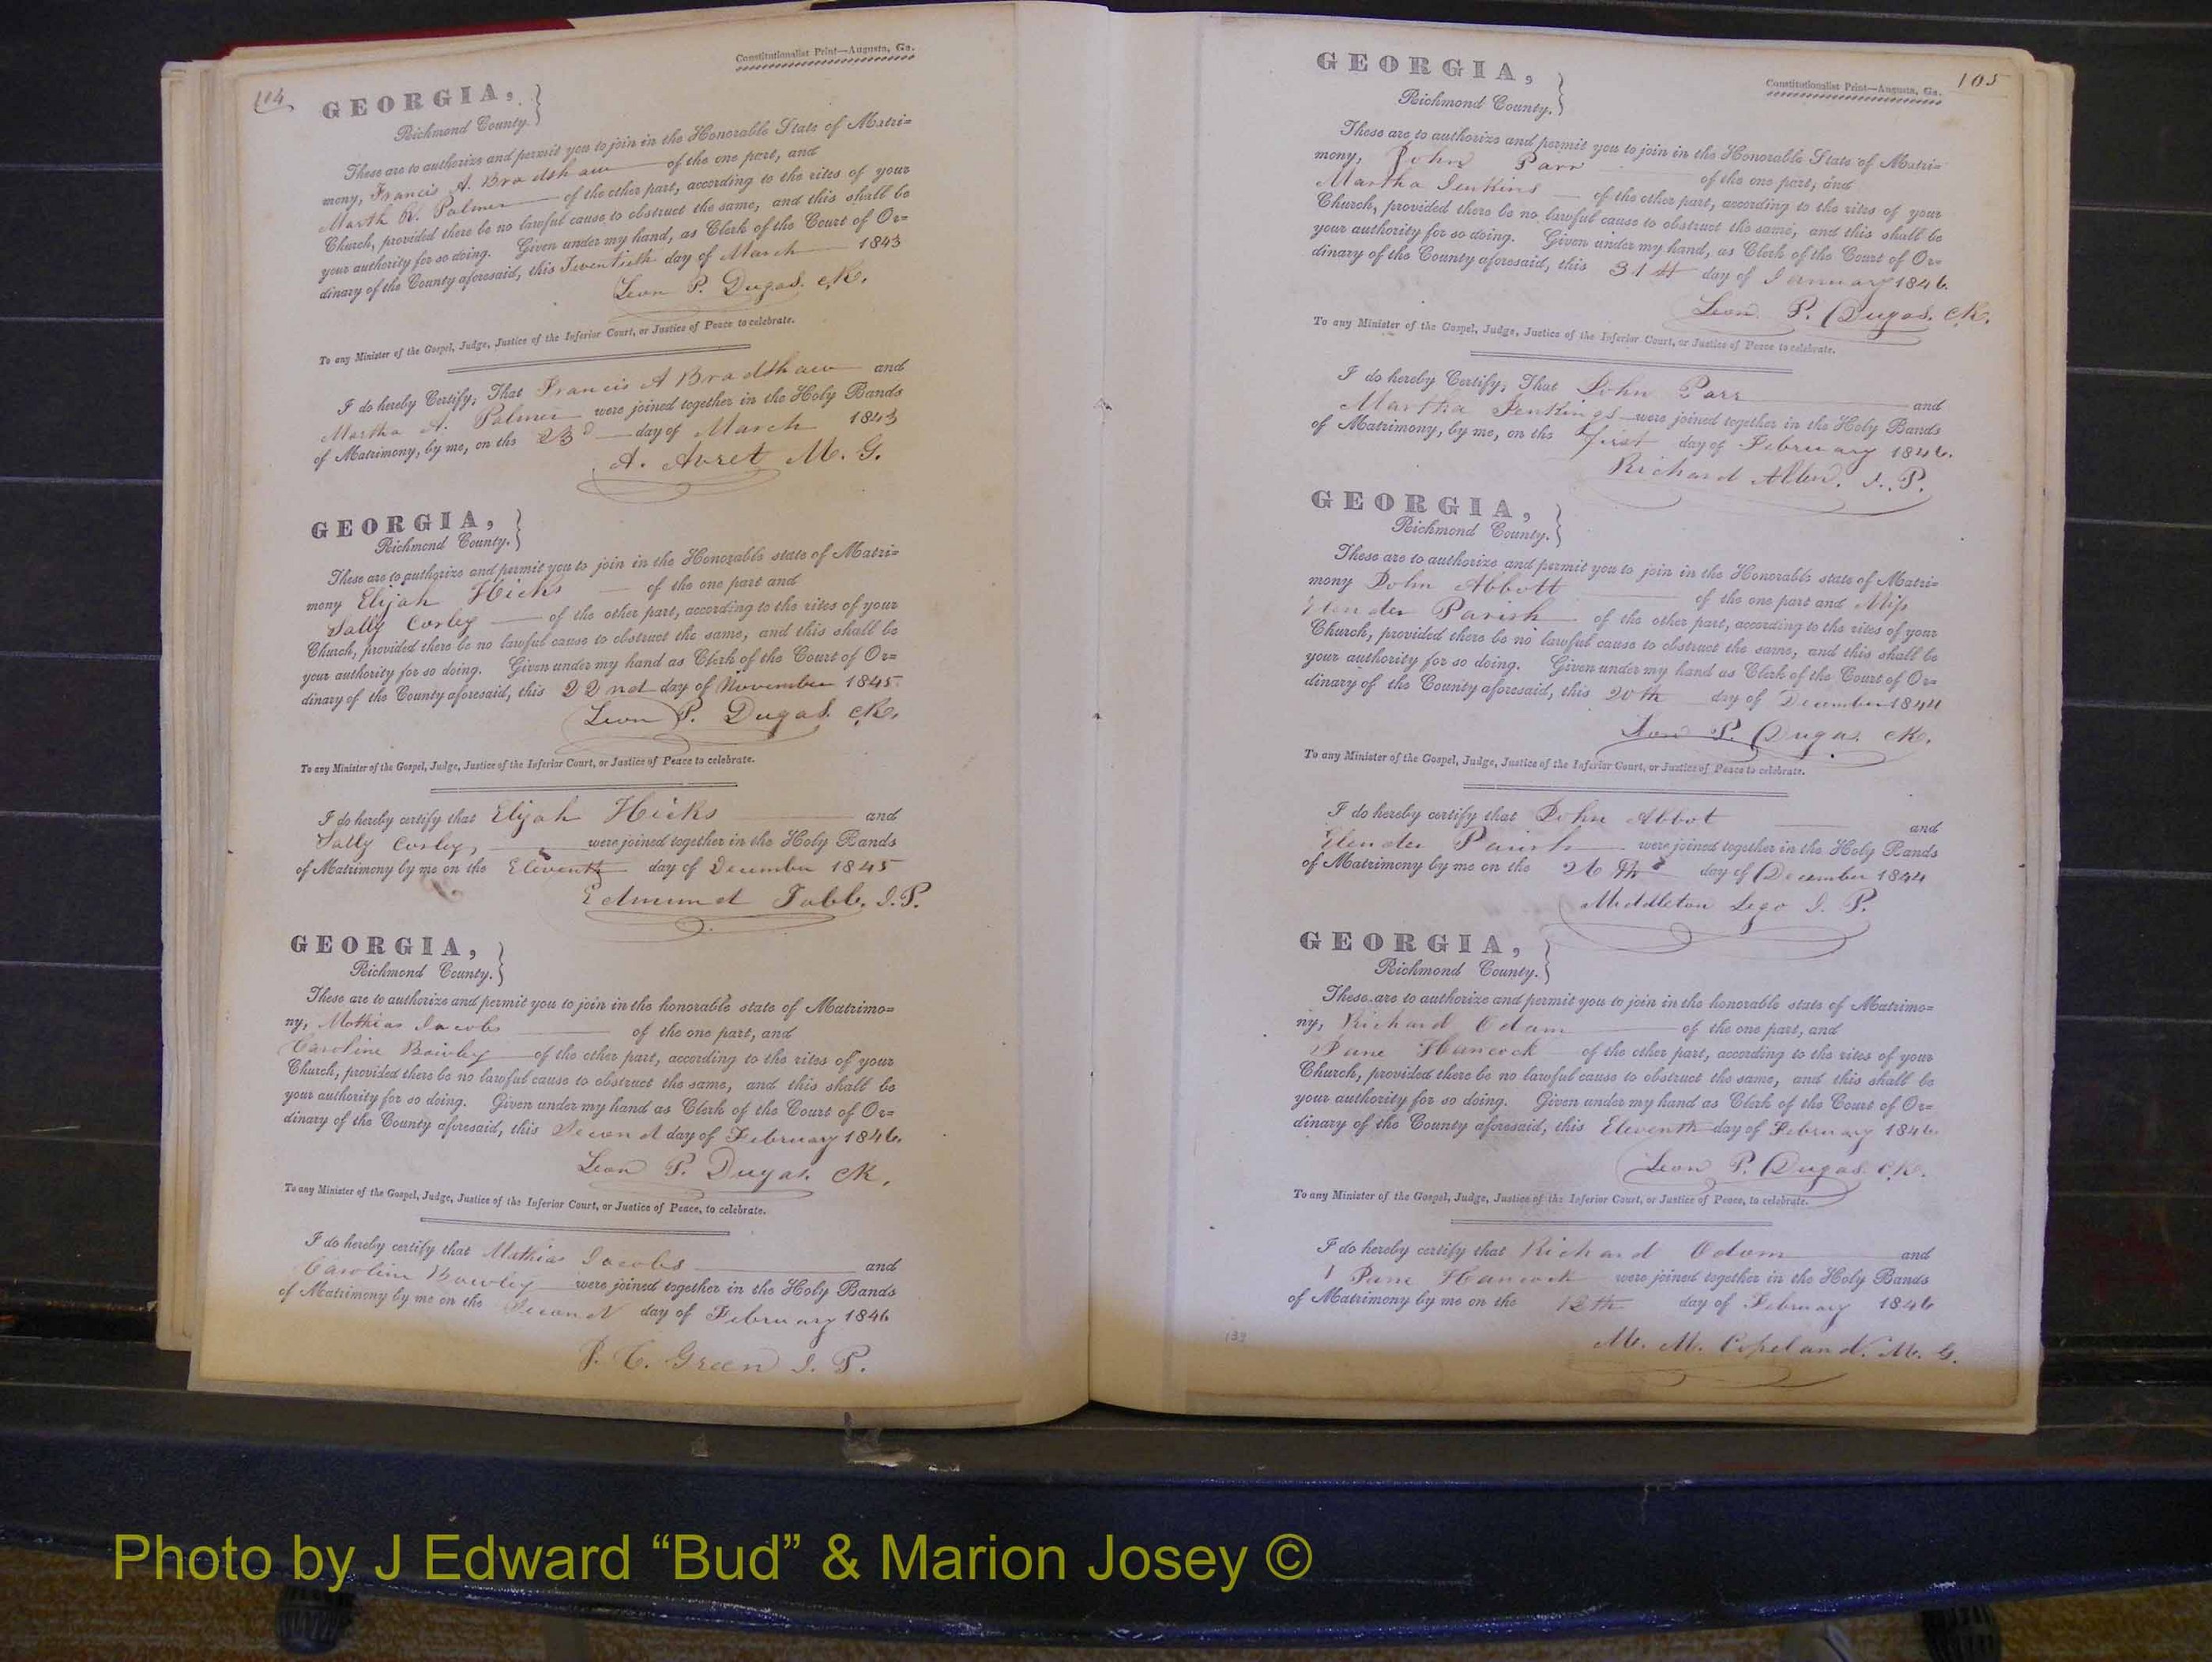 104
Constitutionalist Print—Augusta, Ga.
GEORGIA,
Richmond County.
These are to authorize and permit you to join in the Honorable State of Matri=
mony, Francis A. Bradshaw of the one part, and
Marth R. Palmer of the other part, according to the rites of your
Church, provided there be no lawful cause to obstruct the same, and this shall be
your authority for so doing. Given under my hand, as Clerk of the Court of Or=
dinary of the County aforesaid, this Twentieth day of March 1843
Leon P. Dugas. Clk.
To any Minister of the Gospel, Judge, Justice of the Inferior Court, or Justice of Peace to celebrate.
I do hereby Certify, That Francis A Bradshaw and
Martha A. Palmer were joined together in the Holy Bands
of Matrimony, by me, on the 23d day of March 1843
A. Avret M. G.
GEORGIA,
Richmond County.
These are to authorize and permit you to join in the Honorable state of Matri=
mony Elijah Hicks of the one part and
Sally Corley of the other part, according to the rites of your
Church, provided there be no lawful cause to obstruct the same, and this shall be
your authority for so doing. Given under my hand as Clerk of the Court of Or=
dinary of the County aforesaid, this 22nd day of November 1845
Leon P. Dugas. Clk.
To any Minister of the Gospel, Judge, Justice of the Inferior Court, or Justice of Peace to celebrate.
I do hereby certify that Elijah Hicks and
Sally Corley, were joined together in the Holy Bands
of Matrimony by me on the Eleventh day of December 1845
Edmund Tabb. J.P.
GEORGIA,
Richmond County.
These are to authorize and permit you to join in the honorable state of Matrimo=
ny, Mathias Jacobs of the one part, and
Caroline Bowley of the other part, according to the rites of your
Church, provided there be no lawful cause to obstruct the same, and this shall be
your authority for so doing. Given under my hand as Clerk of the Court of Or=
dinary of the County aforesaid, this Second day of February 1846.
Leon P. Dugas. Clk.
To any Minister of the Gospel, Judge, Justice of the Inferior Court, or Justice of Peace, to celebrate.
I do hereby certify that Mathias Jacobs and
Caroline Bowley were joined together in the Holy Bands
of Matrimony by me on the Second day of February 1846
J. C. Green J. P.
105
Constitutionalist Print—Augusta, Ga.
GEORGIA,
Richmond County.
These are to authorize and permit you to join in the Honorable State of Matri=
mony, John Parr of the one part, and
Martha Jenkins of the other part, according to the rites of your
Church, provided there be no lawful cause to obstruct the same, and this shall be
your authority for so doing. Given under my hand, as Clerk of the Court of Or=
dinary of the County aforesaid, this 31st day of January 1846.
Leon P. Dugas. Clk.
To any Minister of the Gospel, Judge, Justice of the Inferior Court, or Justice of Peace to celebrate.
I do hereby Certify, That John Parr and
Martha Jenkings were joined together in the Holy Bands
of Matrimony, by me, on the first day of February 1846.
Richard Allen. J. P.
GEORGIA,
Richmond County.
These are to authorize and permit you to join in the Honorable state of Matri=
mony John Abbott of the one part and Miss
Elender Parish of the other part, according to the rites of your
Church, provided there be no lawful cause to obstruct the same, and this shall be
your authority for so doing. Given under my hand as Clerk of the Court of Or=
dinary of the County aforesaid, this 20th day of December 1844
Leon P. Dugas. Clk.
To any Minister of the Gospel, Judge, Justice of the Inferior Court, or Justice of Peace to celebrate.
I do hereby certify that John Abbot and
Elender Parish were joined together in the Holy Bands
of Matrimony by me on the 26th day of December 1844
Middleton Sego J. P.
GEORGIA,
Richmond County.
These are to authorize and permit you to join in the honorable state of Matrimo=
ny, Richard Odom of the one part, and
Jane Hancock of the other part, according to the rites of your
Church, provided there be no lawful cause to obstruct the same, and this shall be
your authority for so doing. Given under my hand as Clerk of the Court of Or=
dinary of the County aforesaid, this Eleventh day of February 1846.
Leon P. Dugas. Clk.
To any Minister of the Gospel, Judge, Justice of the Inferior Court, or Justice of Peace, to celebrate.
I do hereby certify that Richard Odom and
Jane Hancock were joined together in the Holy Bands
of Matrimony by me on the 12th day of February 1846
M. M. Copeland. M. G.
Photo by J Edward “Bud” & Marion Josey ©